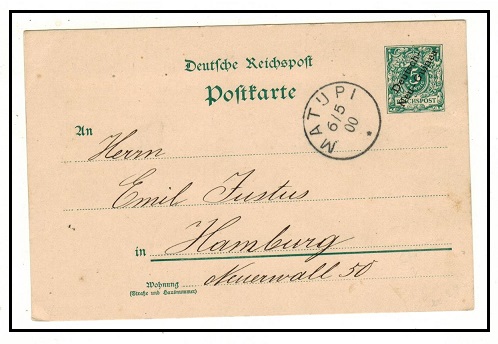 Deutsche Reichspost
Postkarte
REICHSPOST
MATUPI
6/5
00
*
An
Herrn
Emil Justus
in Hamburg
Wohnung Neuerwall 50
(Straße und Hausnummer)